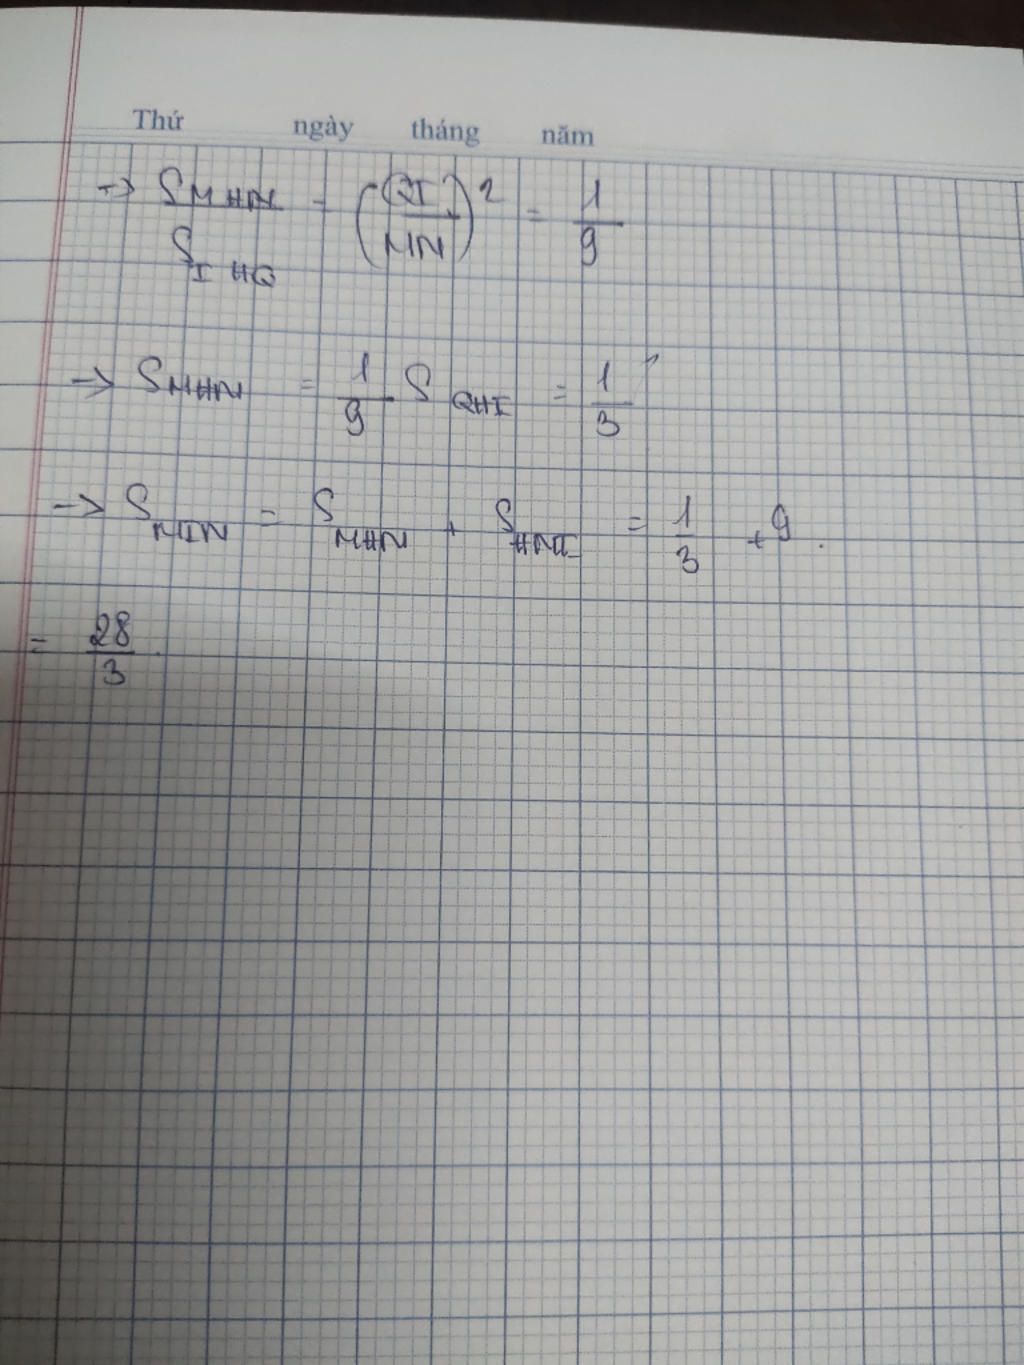 Thứ ngày tháng năm
→ S_MHN / S_IHQ = (QI / MN)² = 1/9
→ S_MHN = 1/9 S_QHI = 1/3
→ S_MIN = S_MHN + S_HNI = 1/3 + 9.
= 28/3.